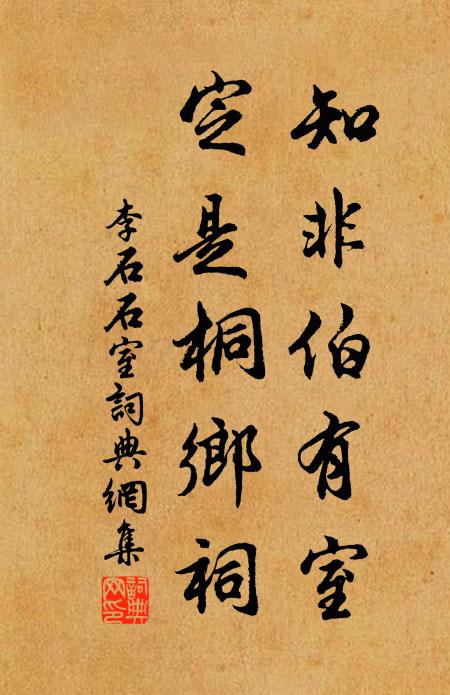 知非伯有室
定是桐鄉祠
李石石室詞典網集
詞典網印